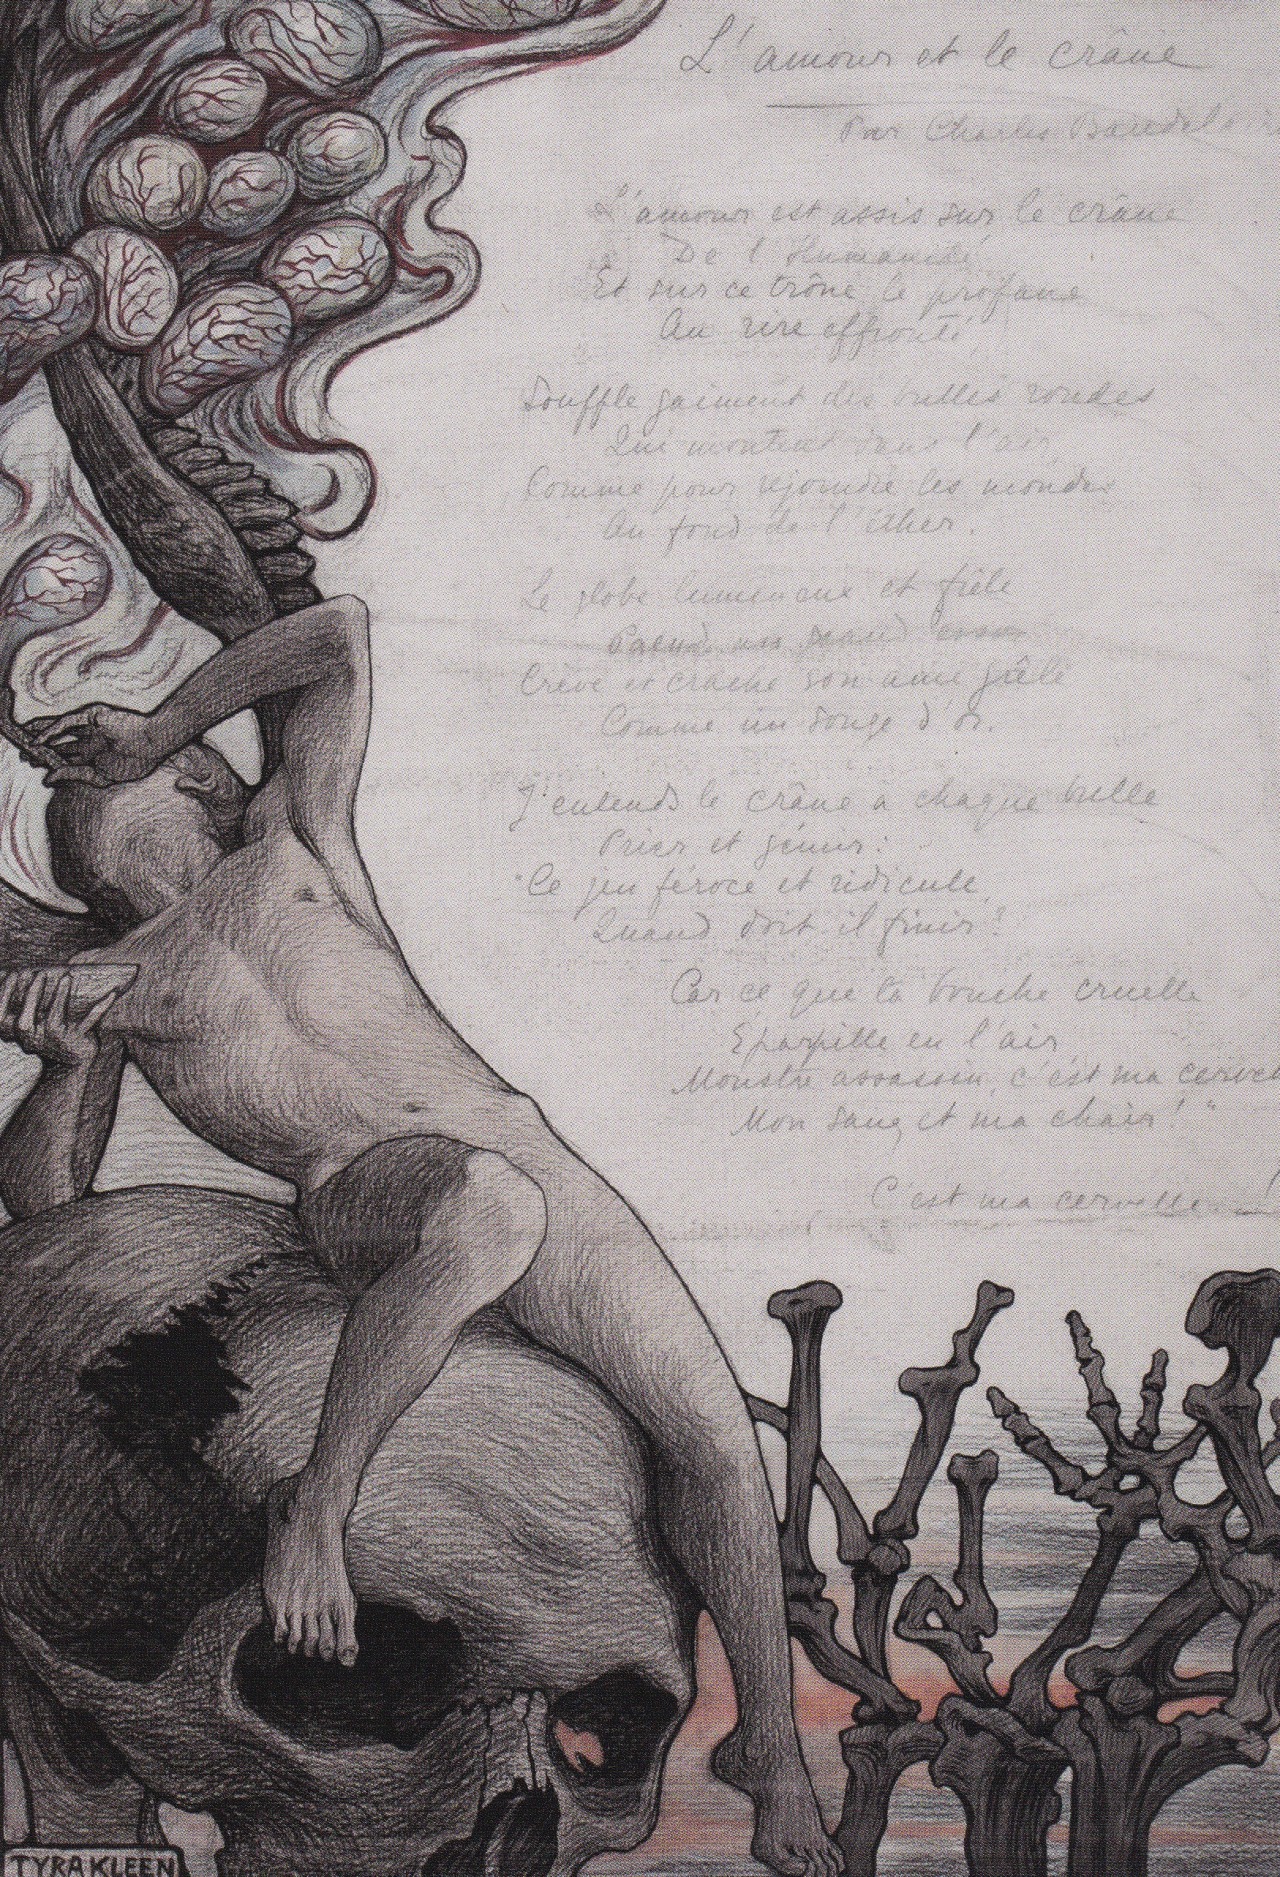 L'amour et le crâne
Par Charles Baudelaire
L'amour est assis sur le crâne
De l'Humanité
Et sur ce trône le profane
Au rire effronté,
Souffle gaiment des bulles rondes
Qui montent dans l'air,
Comme pour rejoindre les mondes
Au fond de l'éther.
Le globe lumineux et frêle
Prend un grand essor
Crève et crache son âme grêle
Comme un songe d'or.
J'entends le crâne a chaque bulle
Prier et gémir:
"Ce jeu féroce et ridicule,
Quand doit il finir?
Car ce que ta bouche cruelle
Éparpille en l'air
Monstre assassin, c'est ma cervelle
Mon sang et ma chair!"
C'est ma cervelle !
TYRA KLEEN